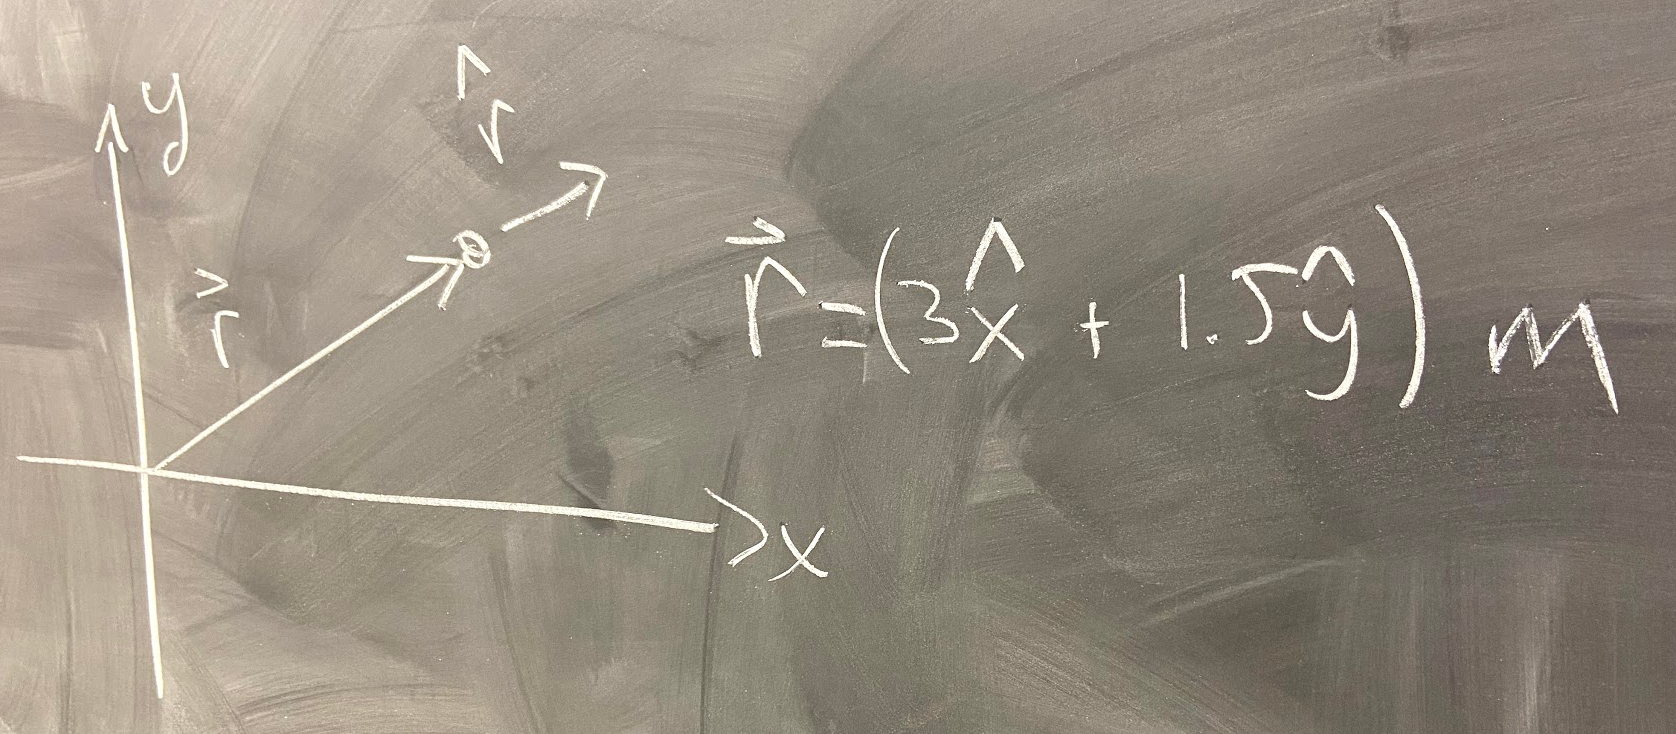 y
r̂
r⃗
x
r⃗ = (3x̂ + 1.5ŷ) m